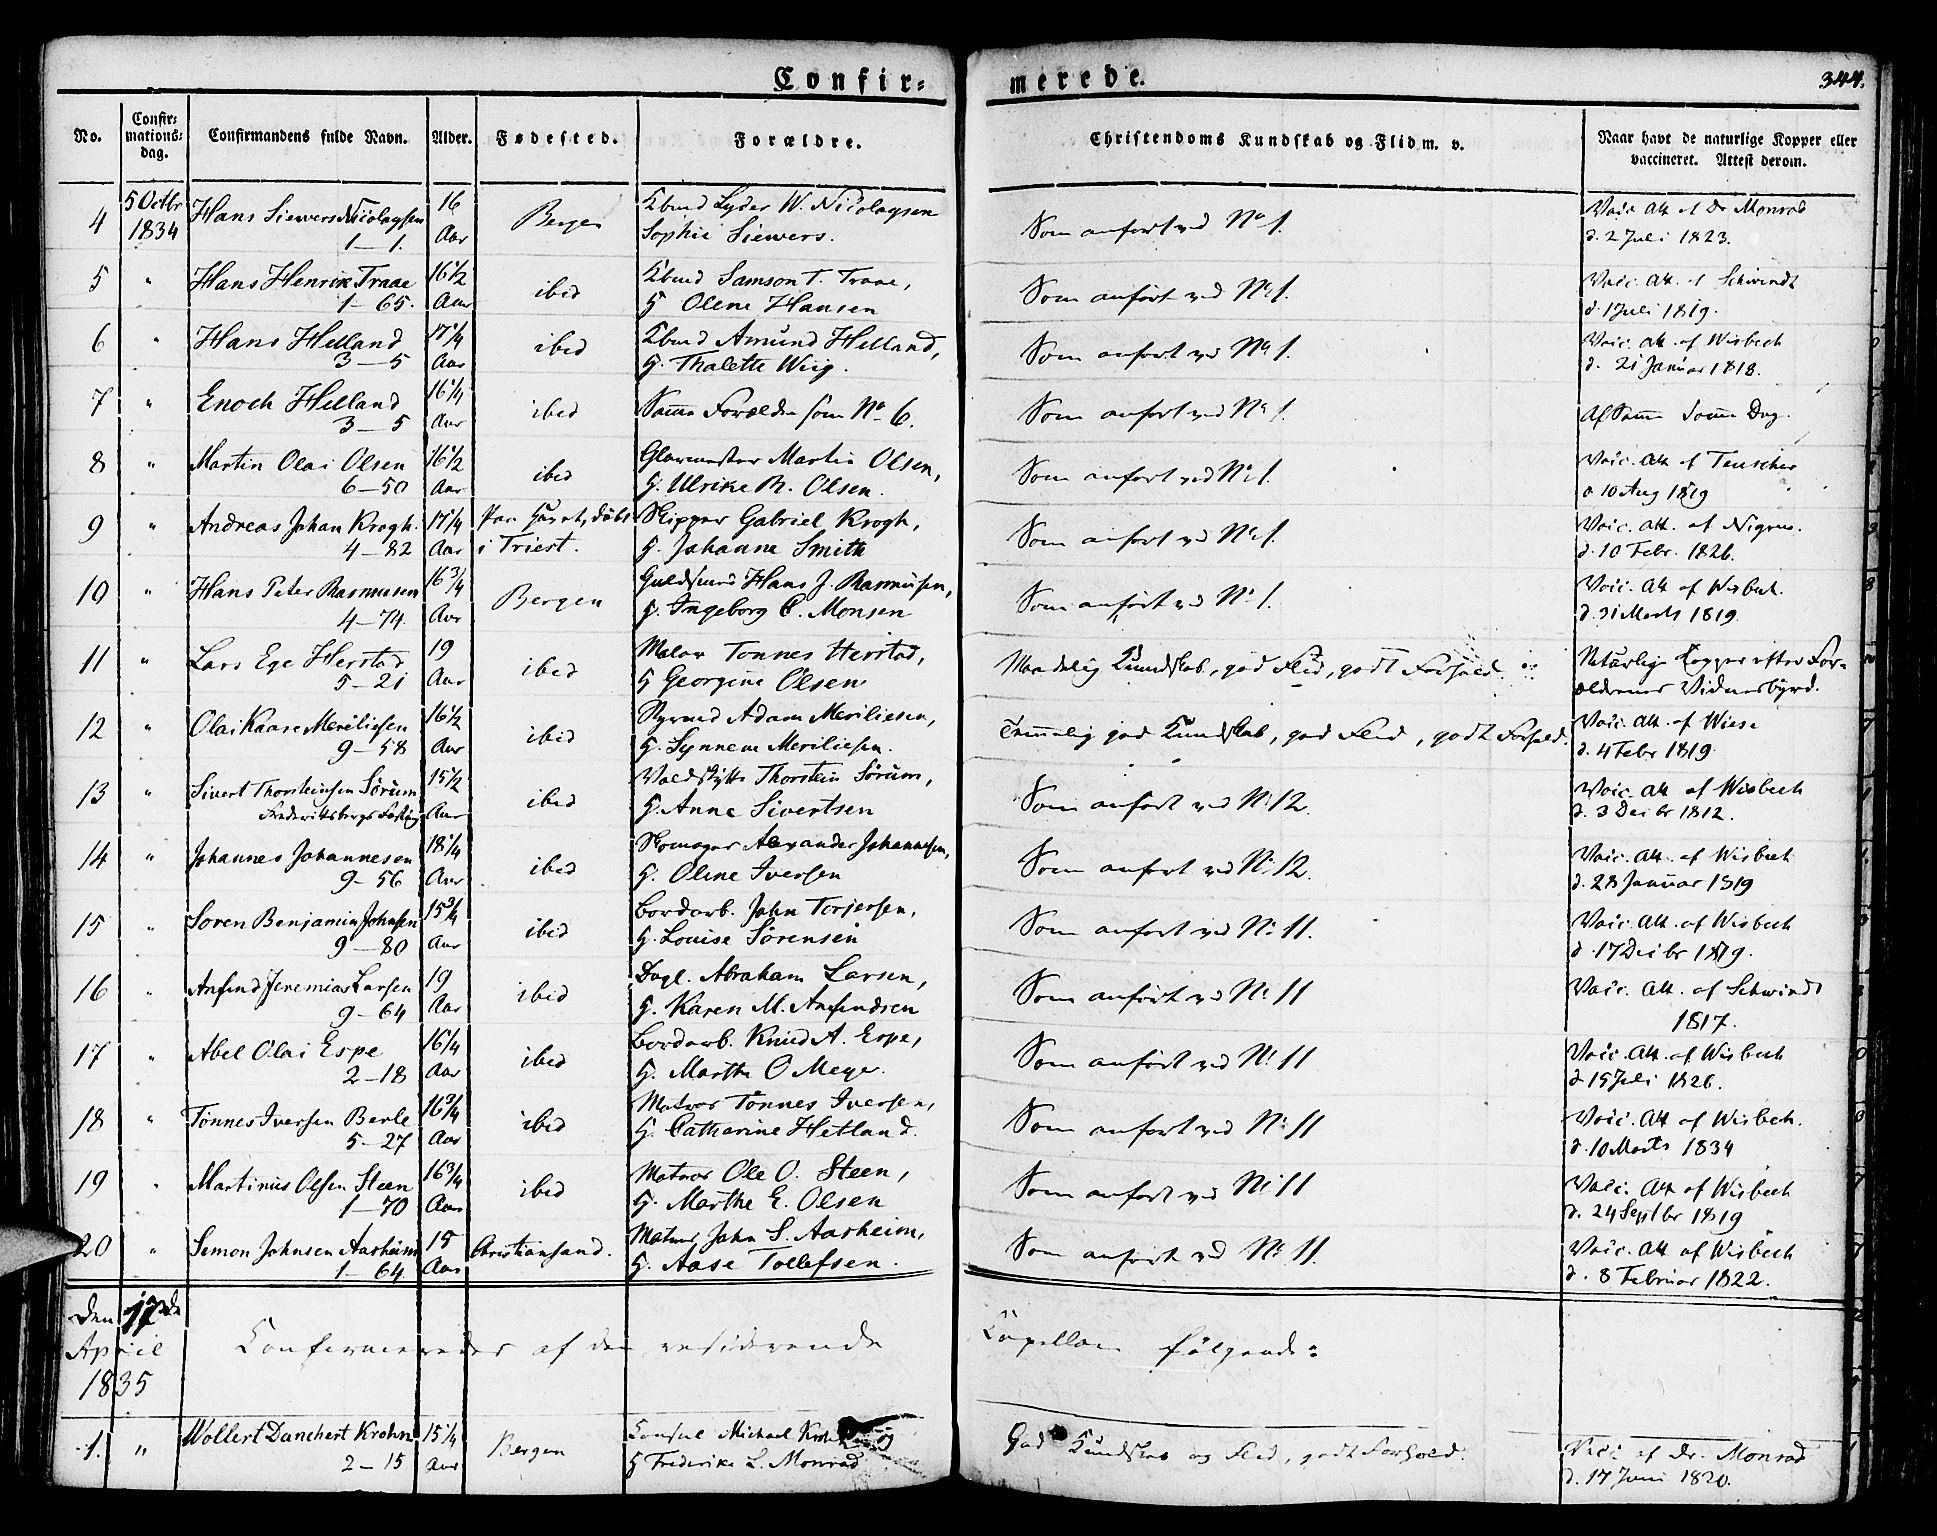 Confir-
merede.
344.
No.
Confir-
mations-
dag.
Confirmandens fulde Navn.
Alder.
Fødested.
Forældre.
Christendoms Kundskab og Flid m. v.
Naar havt de naturlige Kopper eller
vaccineret. Attest derom.
4 5 Octbr 1834 Hans Siewers Nicolaysen 16 Aar Bergen Kbmd Lyder W. Nicolaysen
1-1. Sophie Siewers. Som anført ved No 1. Vacc. Att. af Dr Monrad
d. 2 Juli 1823.
5 " Hans Henrik Traae 16 1/2 Aar ibid Kbmd Samson T. Traae,
1-65. H. Olene Hansen Som anført ved No 1. Vacc. Att. af Schwindt
d. 1 Juli 1819.
6 " Hans Helland 17 1/4 Aar ibid Kbmd Amund Helland,
3-5 H. Thalette Wiig. Som anført ved No 1. Vacc. Att. af Wisbech
d. 21 Januar 1818.
7 " Enoch Helland 16 1/4 Aar ibid Samme Forældre som No 6.
3-5 Som anført ved No 1. Af Samme Samme Dag.
8 " Martin Olai Olsen 16 1/2 Aar ibid Glarmester Martin Olsen,
6-50 H. Ulrike M. Olsen. Som anført ved No 1. Vacc. Att. af Teuscher
d 10 Aug 1819
9 " Andreas Johan Krogh. 17 1/4 Aar Paa Havet, døbt i Triest. Skipper Gabriel Krogh,
4-82 H. Johanne Smith Som anført ved No 1. Vacc. Att. af Nigrus.
d. 10 Febr. 1826.
10 " Hans Peter Rasmusen 16 3/4 Aar Bergen Guldsmed Hans J. Rasmusen,
4-74. H. Ingeborg C. Monsen Som anført ved No 1. Vacc. Att af Wisbech.
d. 31 Marts 1819.
11 " Lars Ege Herstad 19 Aar ibid Maler Tonnes Herstad,
5-21 H Georgine Olsen. Maadelig Kundskab, god Flid, godt Forhold. Naturlige Kopper efter For-
ældrenes Vidnesbyrd.
12 " Olai Kaare Meriliesen 16 1/2 Aar ibid Styrmd Adam Meriliesen,
9-58 H. Synneve Meriliesen. Temmelig god Kundskab, god Flid, godt Forhold. Vacc. Att. af Wiese
d. 4 Febr 1819.
13 " Sivert Thorsteinsen Sörum 15 1/2 Aar ibid Voldskytte Thorstein Sörum,
Frederiksbergs Fæstng H. Anne Sivertsen Som anført ved No 12. Vacc. Att af Wisbech
d. 3 Decbr 1812.
14 " Johannes Johannesen 18 1/4 Aar ibid Skomager Alexander Johannesen,
9-56 H. Oline Iversen Som anført ved No 12. Vacc. Att. af Wisbech
d. 28 Januar 1819
15 " Soren Benjamin Johnsen 15 3/4 Aar ibid Bordarb. John Torjersen,
9-80 H. Louise Sörensen Som anført ved No 11. Vacc. Att. af Wisbech
d. 17 Decbr 1819.
16 " Anfind Jeremias Larsen 19 Aar ibid Dagl. Abraham Larsen,
9-64 H. Karen M. Anfindsen Som anført ved No 11 Vacc. Att. af Schwindt
1817.
17 " Abel Olai Espe 16 1/4 Aar ibid Bordarb. Knud A. Espe,
2-18 H. Marthe O Meyer. Som anført ved No 11 Vacc. Att. af Wisbech
d 15 Juli 1826.
18 " Tönnes Iversen Berle 16 3/4 Aar ibid Matros Tönnes Iversen,
5-27 H. Catharine Hetland. Som anført ved No 11 Vacc. Att af Wisbech.
d. 10 Marts 1834
19 " Martinus Olsen Steen 16 3/4 Aar ibid Matros Ole O. Steen,
1-70 H. Marthe E. Olsen Som anført ved No 11 Vacc. Att af Wisbech
d. 24 Septbr 1819
20 " Simon Johnsen Aarheim 15 Aar Christiansand. Matros John S. Aarheim,
1-64 H. Aase Tollefsen. Som anført ved No 11. Vacc. Att af Wisbech
d. 8 Februar 1822.
Den 17de
April
1835
Confirmeredes af den residerende Capellan følgende:
1. " Wollert Danchert Krohn 15 1/4 Aar Bergen Consul Michael Krohn
2-15 H Frederike L. Monrad God Kundskab og Flid, godt Forhold. Vacc af Dr. Monrad
d. 17 Juni 1820.